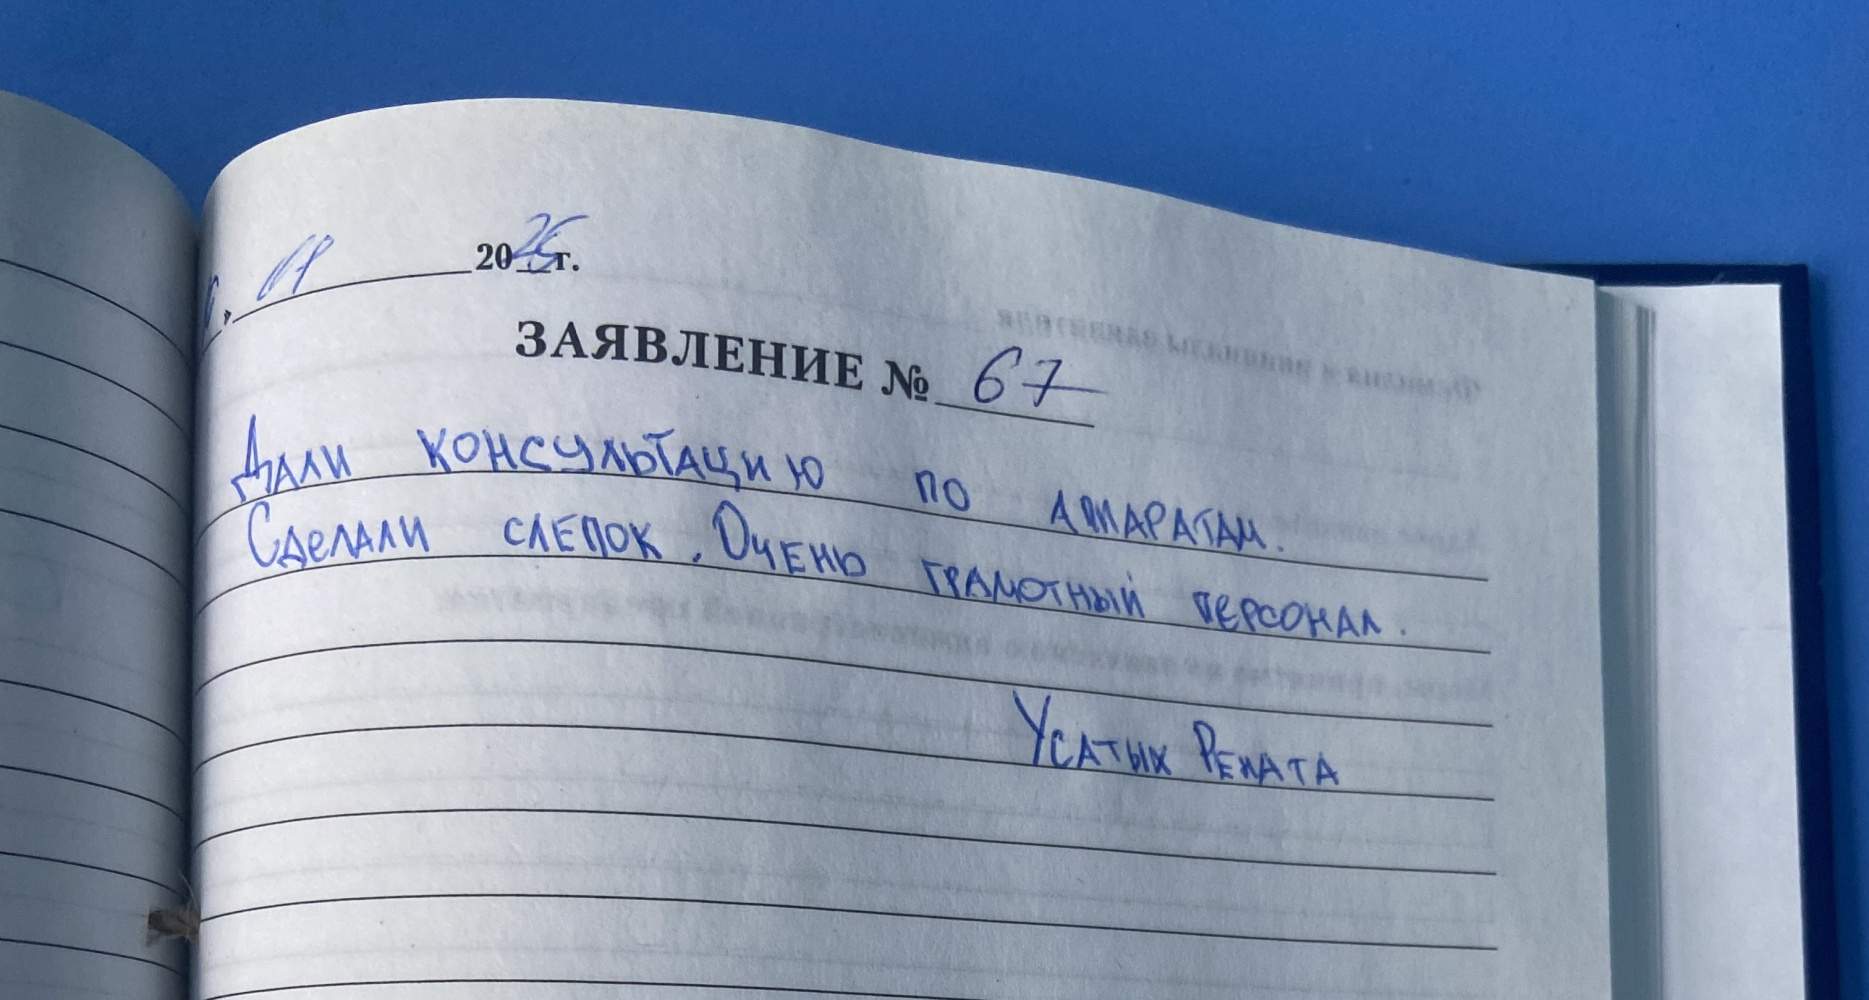 20 25 г.
ЗАЯВЛЕНИЕ № 67
Дали консультацию по аппаратам.
Сделали слепок. Очень грамотный персонал.
Усатых Рената